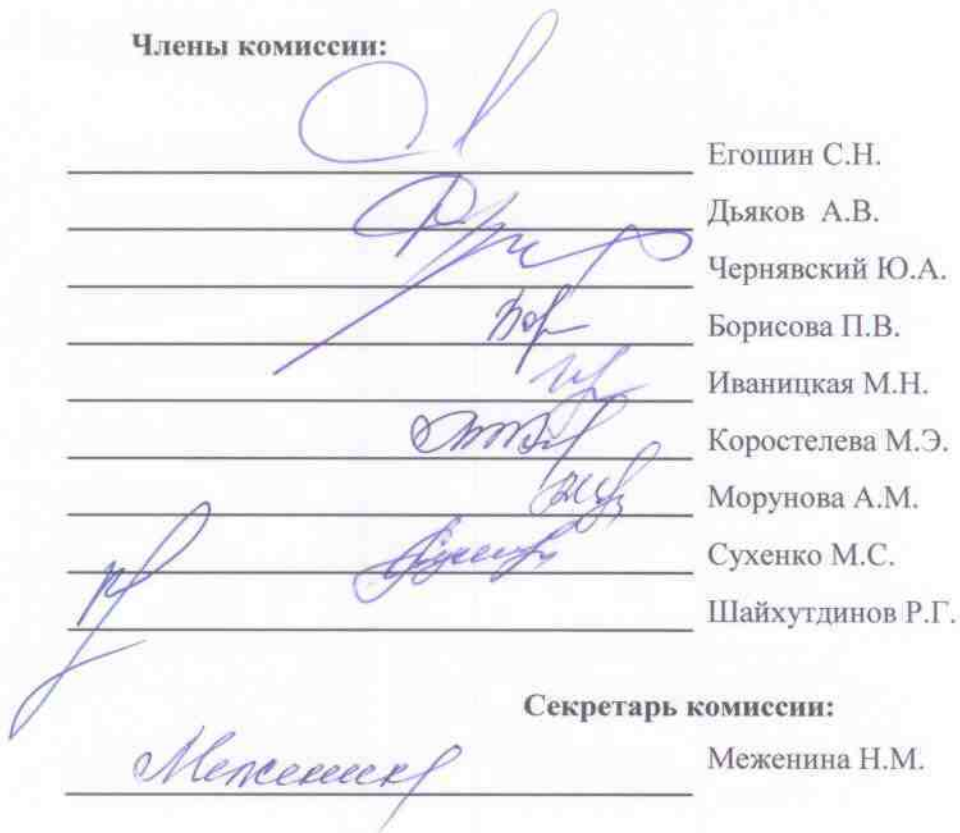 Члены комиссии:
Егошин С.Н.
Дьяков А.В.
Чернявский Ю.А.
Борисова П.В.
Иваницкая М.Н.
Коростелева М.Э.
Морунова А.М.
Сухенко М.С.
Шайхутдинов Р.Г.
Секретарь комиссии:
Меженина Н.М.